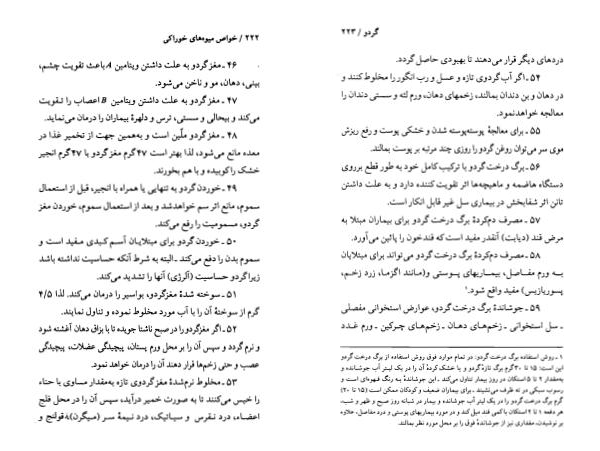 ۲۲۲ / خواص میوه‌های خوراکی
۴۶ ـ مغز گردو به علت داشتن ویتامین A باعث تقویت چشم،
بینی، دهان، مو و ناخن می‌شود.
۴۷ ـ مغز گردو به علت داشتن ویتامین B اعصاب را تقویت
می‌کند و بیحالی و سستی، ترس و دلهرهٔ بیماران را درمان می‌نماید.
۴۸ ـ مغز گردو ملّین است و به‌همین جهت از تخمیر غذا در
معده مانع می‌شود، لذا بهتر است ۴۷ گرم مغز گردو یا ۴۷ گرم انجیر
خشک را کوبیده و با هم بخورند.
۴۹ ـ خوردن گردو به تنهایی یا همراه با انجیر، قبل از استعمال
سموم، مانع اثر سم خواهدشد و بعد از استعمال سموم، خوردن مغز
گردو، مسمومیت را رفع می‌کند.
۵۰ ـ خوردن گردو برای مبتلایان آسم کبدی مفید است و
سموم بدن را دفع می‌کند ـ البته به شرط آنکه حساسیت نداشته باشد
زیرا گردو حساسیت (آلرژی) آنها را تشدید می‌کند.
۵۱ ـ سوخته شدهٔ مغز گردو، بواسیر را درمان می‌کند. لذا ۴/۵
گرم از سوختهٔ آن را با آب مخلوط نموده و تناول نمایند.
۵۲ ـ اگر مغز گردو را در صبح ناشتا جویده تا با بزاق دهان آغشته شود
و نرم گردد و سپس آن را بر محل ورم پستان، پیچیدگی عضلات، پیچیدگی
عصب و حتی زخم‌ها قرار دهند آن را درمان خواهد نمود.
۵۳ ـ مخلوط نرم‌شدهٔ مغز گردوی تازه به‌مقدار مساوی با حناء
را خمیر کنند تا به صورت خمیر درآید، سپس آن را در محل فلج
اعضاء، درد نقرس و سیاتیک، درد نیمهٔ سر (میگرن) قولنج و
گردو / ۲۲۳
دردهای دیگر قرار می‌دهند تا بهبودی حاصل گردد.
۵۴ ـ اگر آب گردوی تازه و عسل و رب انگور را مخلوط کنند و
در دهان و بن دندان بمالند، زخمهای دهان، ورم لثه و سستی دندان را
معالجه خواهدنمود.
۵۵ ـ برای معالجهٔ پوسته‌پوسته شدن و خشکی پوست و رفع ریزش
موی سر می‌توان روغن گردو را روزی چند مرتبه بر پوست بمالند.
۵۶ ـ برگ درخت گردو با ترکیب کامل خود به طور قطع برروی
دستگاه هاضمه و ماهیچه‌ها اثر تقویت کننده دارد و به علت داشتن
تانن اثر شفابخش در بیماری سل غیر قابل انکار است.
۵۷ ـ مصرف دم‌کردهٔ برگ درخت گردو برای بیماران مبتلا به
مرض قند (دیابت) آنقدر مفید است که قندخون را پائین می‌آورد.
۵۸ ـ مصرف دم‌کردهٔ برگ درخت گردو می‌تواند برای بیماران مبتلا
به ورم مفاصل، بیماریهای پوستی و(مانند اگزما، زرد زخم،
پسوریازیس) مفید واقع شود.¹
۵۹ ـ جوشاندهٔ برگ درخت گردو، عوارض استخوانی مفصلی
ـ سل استخوانی ـ زخم‌های دهان ـ زخم‌های چرکین ـ ورم غدد
۱ ـ روش استفاده برگ درخت گردو: در تمام موارد فوق روش استفاده از برگ درخت گردو
این است: ۱۵ تا ۳۰ گرم برگ تازهٔ گردو و یا خشک کردهٔ آن را در یک لیتر آب جوشانده و
به‌مقدار ۲ تا ۵ استکان در روز بیمار تناول می‌کند ـ این جوشانده به رنگ قهوه‌ای است و
رسوب سبکی در ته ظرف ته نشیند ـ برای بیماران ضعیف و کودکان ممکن است (۱۵ تا ۲۰)
گرم برگ درخت گردو را در یک لیتر آب جوشانده و بیمار در شبانه روز صبح و ظهر و شب،
هر دفعه ۱ تا ۲ استکان با کمی قند میل کند و در مورد بیماریهای پوستی و درد مفاصل، علاوه
بر نوشیدن، مقداری نیز از جوشاندهٔ فوق را بر موضع بمالند.